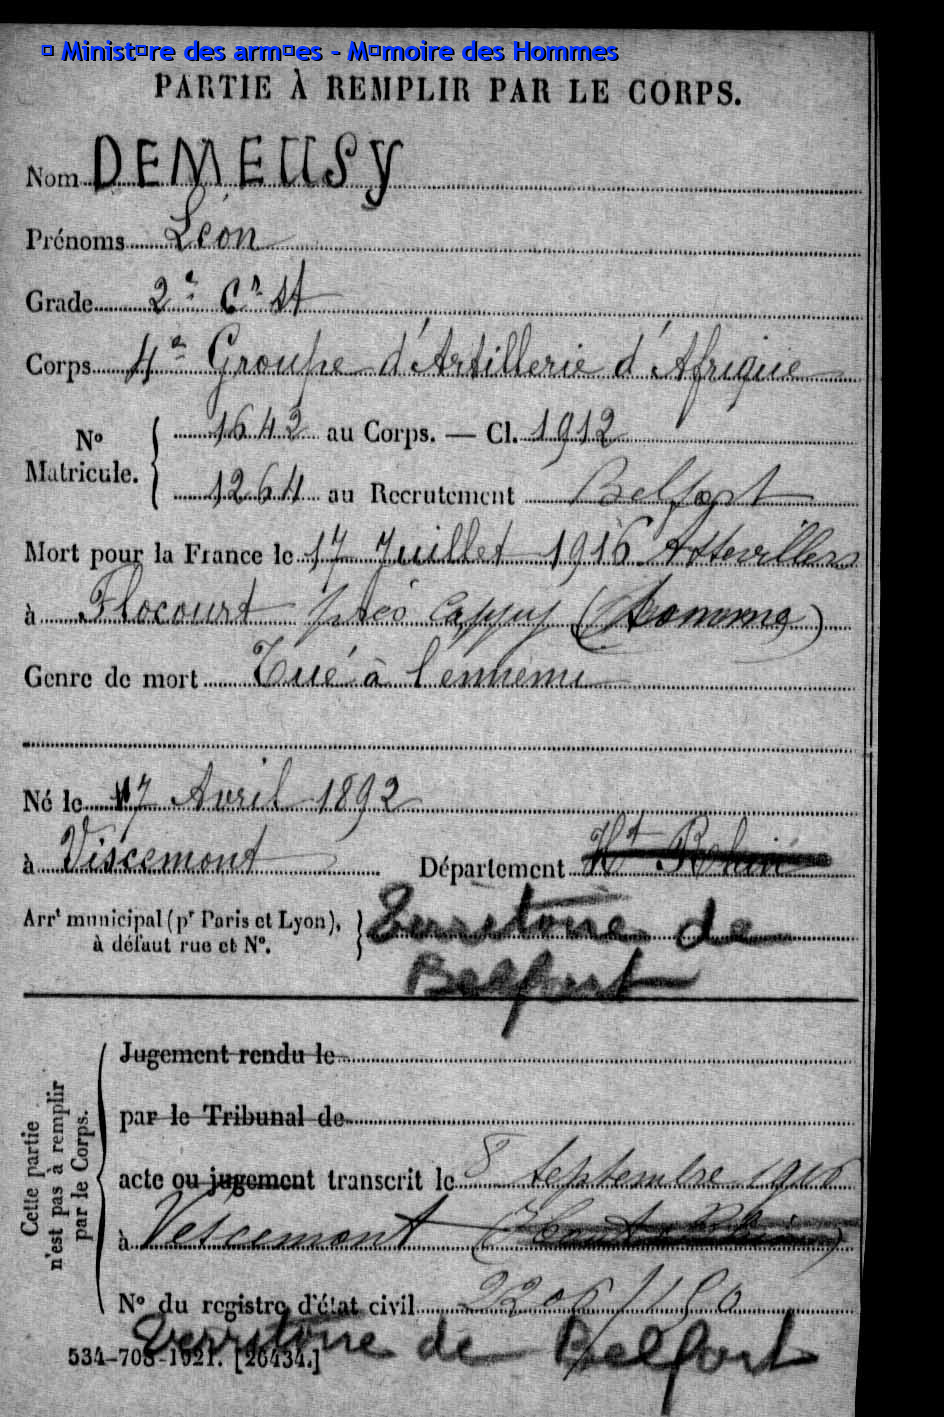 © Minist□re des arm□es - M□moire des Hommes
PARTIE À REMPLIR PAR LE CORPS.
Nom DEMEUSY
Prénoms Léon
Grade 2e Cr St
Corps 4e Groupe d'Artillerie d'Afrique
No Matricule. { 1642 au Corps. — Cl. 1912
1264 au Recrutement Belfort
Mort pour la France le 17 Juillet 1916 Attevillers
à Flocourt près Cappy (Somme)
Genre de mort Tué à l'ennemi
Né le 17 Avril 1892
à Viscemont Département Ht Rhin
Arrt municipal (pr Paris et Lyon), à défaut rue et No. } Territoire de
Belfort
Cette partie n'est pas à remplir par le Corps.
Jugement rendu le
par le Tribunal de
acte ou jugement transcrit le 8 Septembre 1916
à Vescemont (Haut Rhin)
No du registre d'état civil 2206/190
Territoire de Belfort
534-708-1921. [26434.]